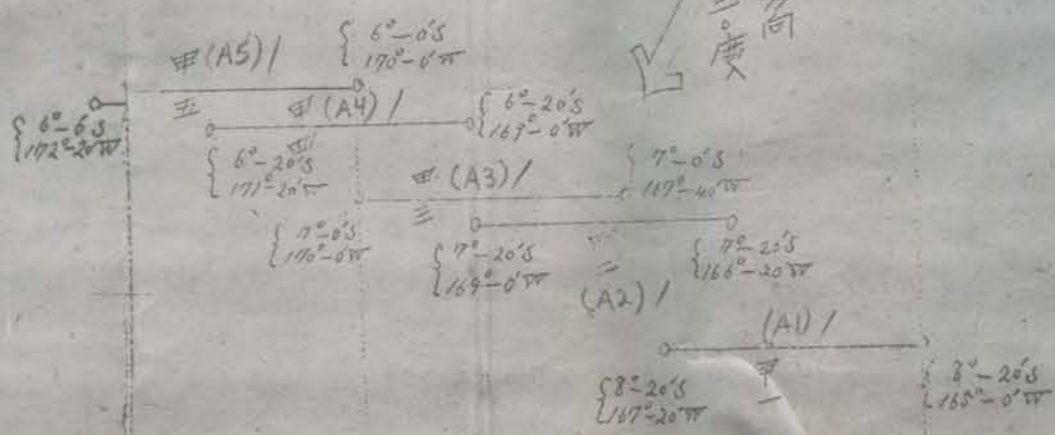 甲(A5)/
五
6°-0'S
170°-0'W
高
度
6°-6'S
172°-20'W
甲(A4)/
四
6°-20'S
169°-0'W
6°-20'S
171°-20'W
甲(A3)/
三
7°-0'S
167°-40'W
7°-0'S
170°-0'W
7°-20'S
169°-0'W
二
(A2)/
7°-20'S
166°-20'W
(A1)/
甲
一
8°-20'S
167°-20'W
8°-20'S
165°-0'W